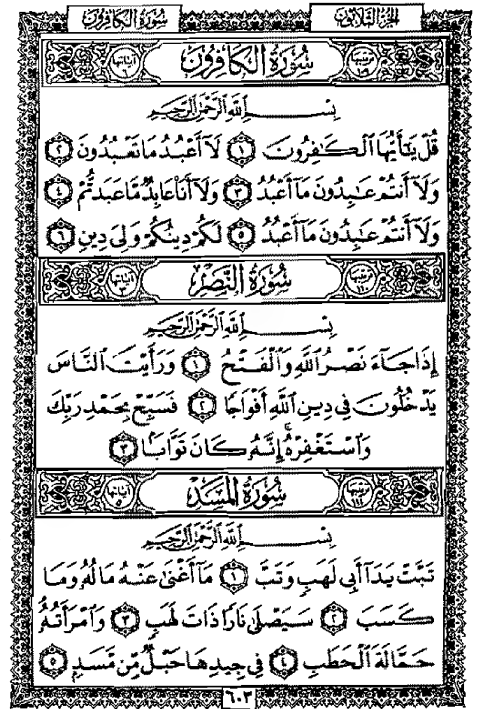 الجزء الثلاثون
سورة الكافرون
ترتيبها ١٠٩
سُورَةُ الكَافِرُون
آياتها ٦
بِسْمِ ٱللَّهِ ٱلرَّحْمَٰنِ ٱلرَّحِيمِ
قُلْ يَٰٓأَيُّهَا ٱلْكَٰفِرُونَ ١ لَآ أَعْبُدُ مَا تَعْبُدُونَ ٢
وَلَآ أَنتُمْ عَٰبِدُونَ مَآ أَعْبُدُ ٣ وَلَآ أَنَا۠ عَابِدٌ مَّا عَبَدتُّمْ ٤
وَلَآ أَنتُمْ عَٰبِدُونَ مَآ أَعْبُدُ ٥ لَكُمْ دِينُكُمْ وَلِىَ دِينِ ٦
ترتيبها ١١٠
سُورَةُ النَّصْر
آياتها ٣
بِسْمِ ٱللَّهِ ٱلرَّحْمَٰنِ ٱلرَّحِيمِ
إِذَا جَآءَ نَصْرُ ٱللَّهِ وَٱلْفَتْحُ ١ وَرَأَيْتَ ٱلنَّاسَ
يَدْخُلُونَ فِى دِينِ ٱللَّهِ أَفْوَاجًا ٢ فَسَبِّحْ بِحَمْدِ رَبِّكَ
وَٱسْتَغْفِرْهُ ۚ إِنَّهُۥ كَانَ تَوَّابًۢا ٣
ترتيبها ١١١
سُورَةُ المَسَد
آياتها ٥
بِسْمِ ٱللَّهِ ٱلرَّحْمَٰنِ ٱلرَّحِيمِ
تَبَّتْ يَدَآ أَبِى لَهَبٍ وَتَبَّ ١ مَآ أَغْنَىٰ عَنْهُ مَالُهُۥ وَمَا
كَسَبَ ٢ سَيَصْلَىٰ نَارًا ذَاتَ لَهَبٍ ٣ وَٱمْرَأَتُهُۥ
حَمَّالَةَ ٱلْحَطَبِ ٤ فِى جِيدِهَا حَبْلٌ مِّن مَّسَدٍۭ ٥
٦٠٣